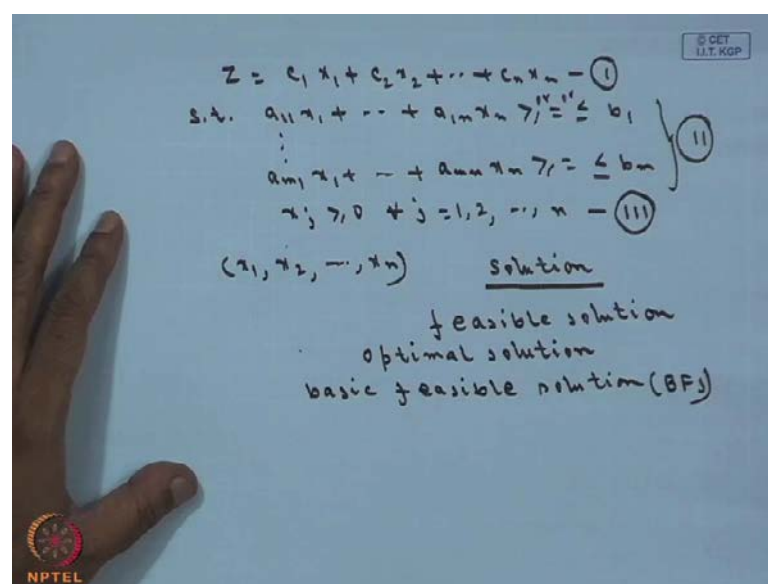 © CET
I.I.T. KGP
Z = c₁ x₁ + c₂ x₂ + ·· + cₙ xₙ — (I)
s.t. a₁₁ x₁ + ·· + a₁ₙ xₙ ≥, = ≤ b₁
⋮
aₘ₁ x₁ + ·· + aₘₙ xₙ ≥, = ≤ bₘ
} (II)
xⱼ ≥ 0 ∀ j = 1, 2, ··, n — (III)
(x₁, x₂, ···, xₙ) solution
feasible solution
optimal solution
basic feasible solution (BFS)
NPTEL